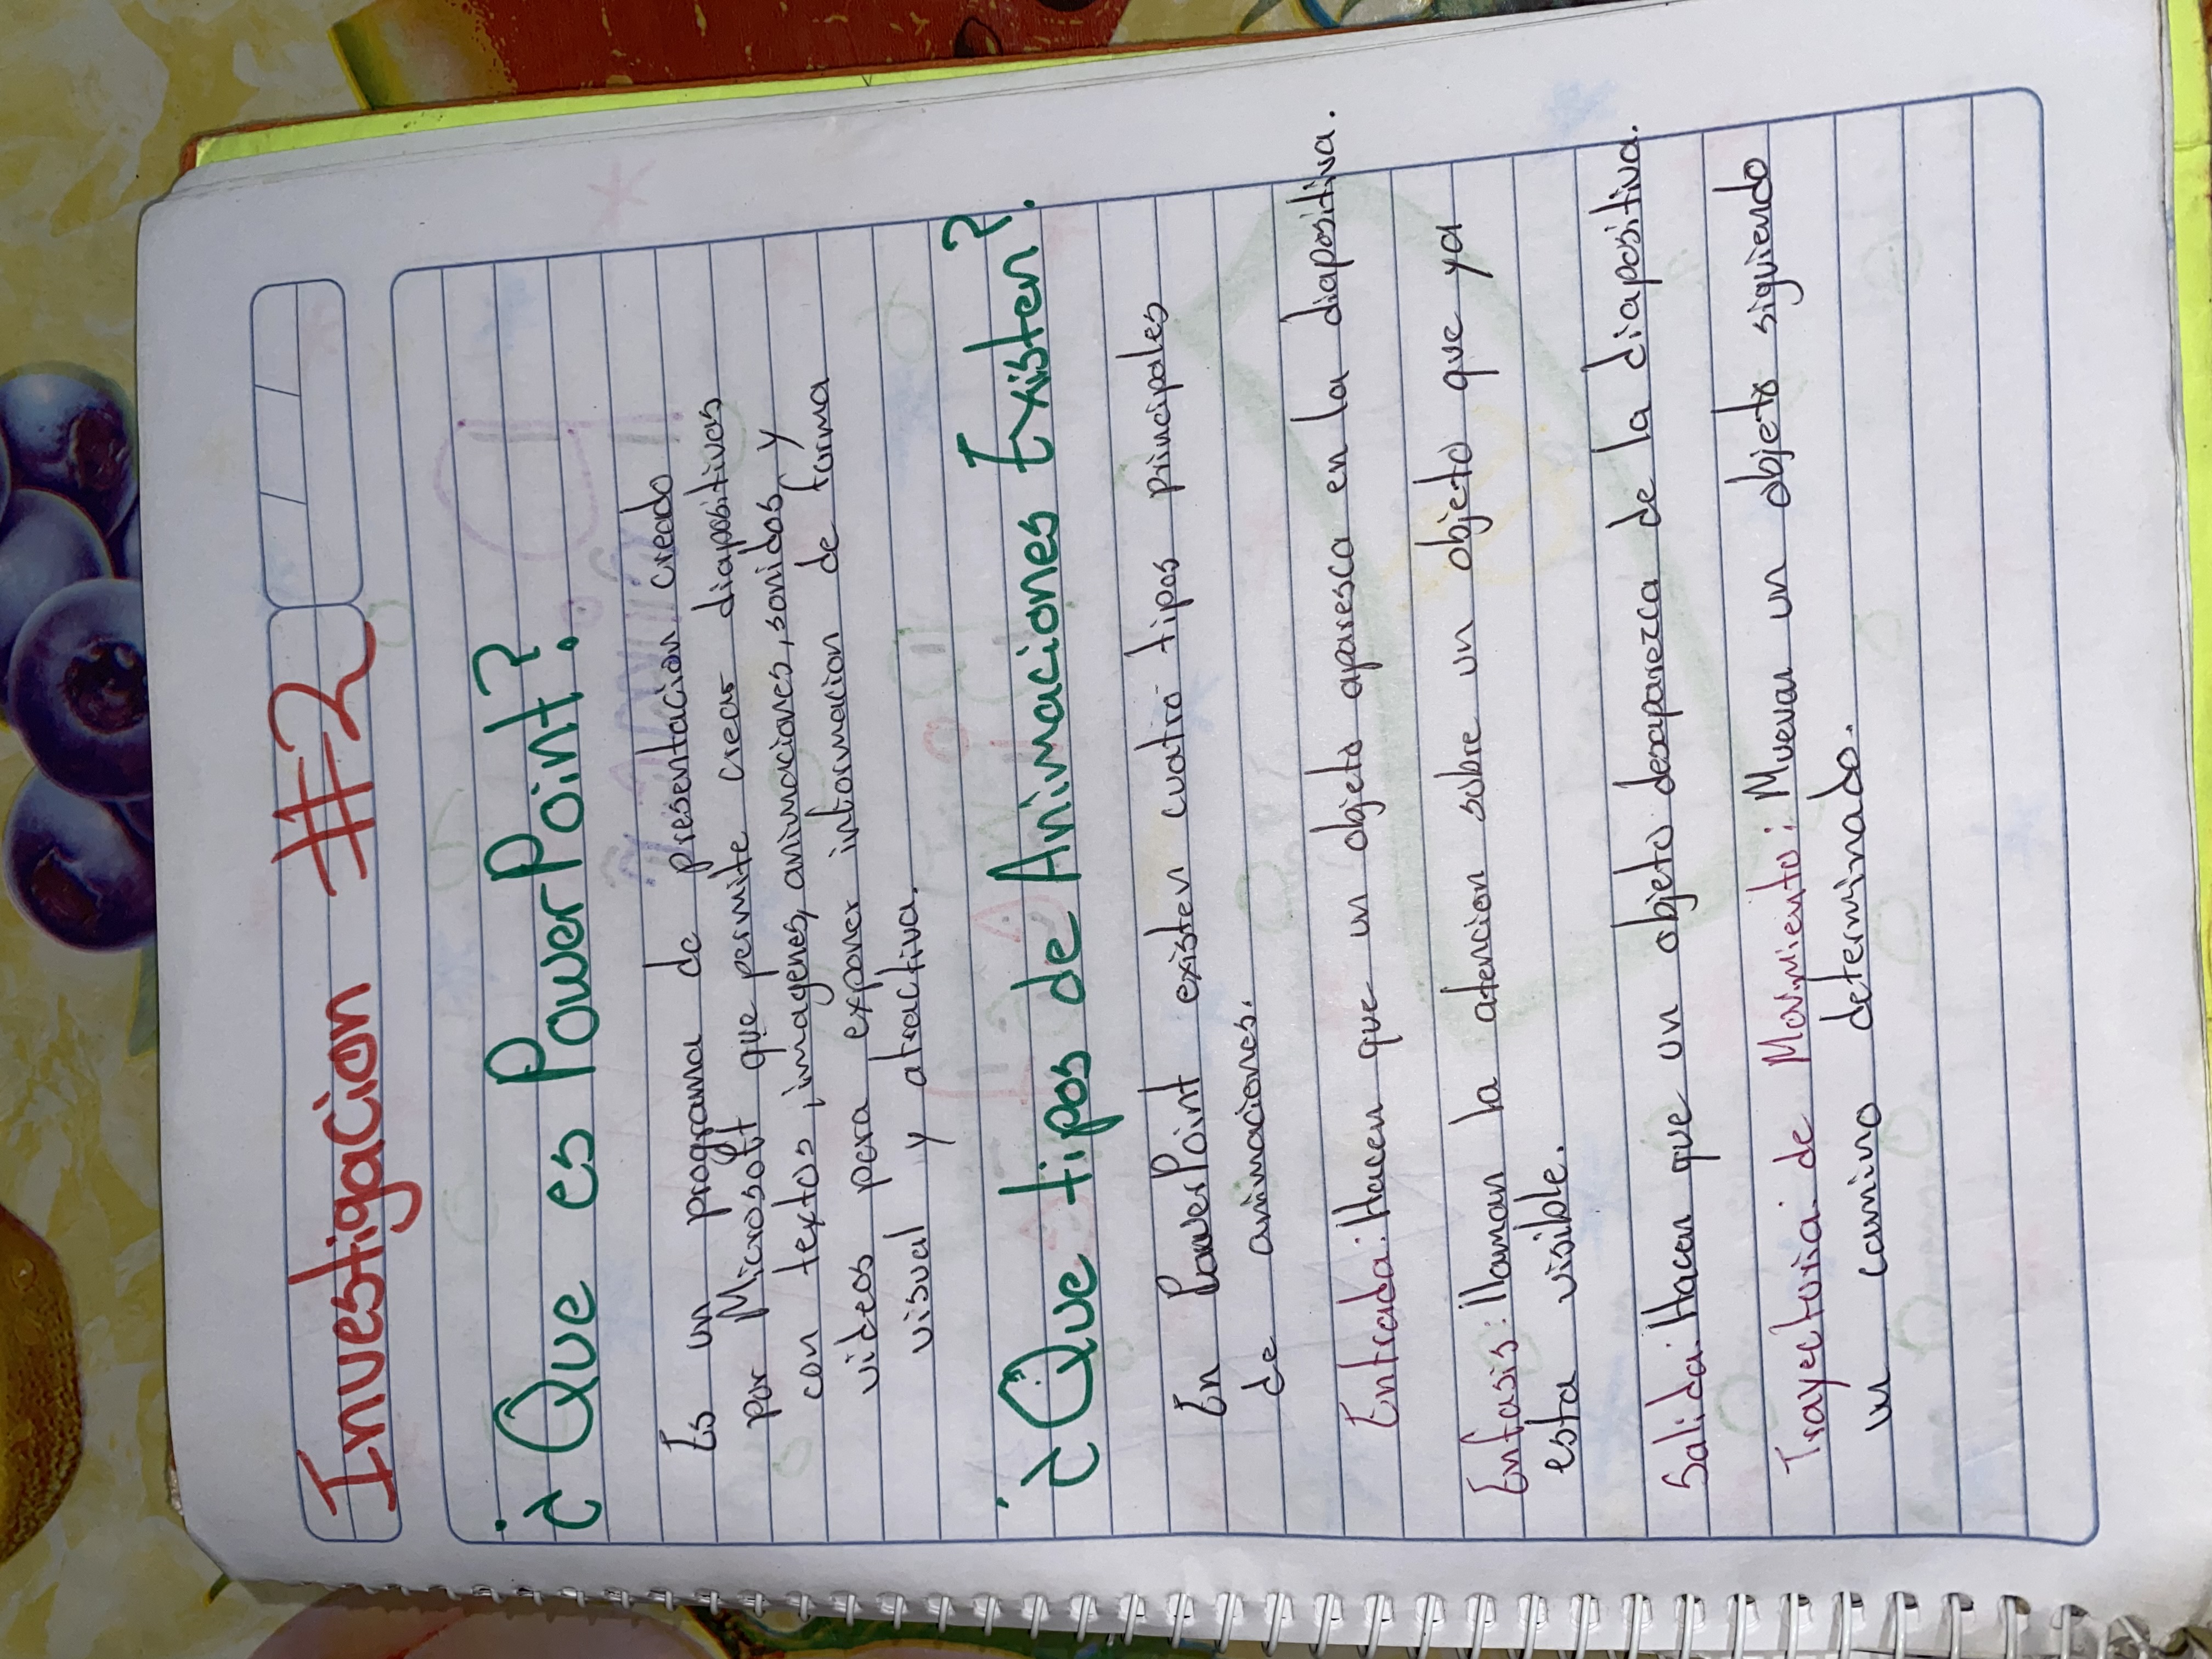 Investigacion #2
¿Que es PowerPoint?
Es un programa de presentacion creado
por Microsoft que permite crear diapositivas
con textos, imagenes, animaciones, sonidos y
videos para exponer informacion de forma
visual y atractiva.
¿Que tipos de Animaciones Existen?
En PowerPoint existen cuatro tipos principales
de animaciones.
Entrada: Hacen que un objeto aparesca en la diapositiva.
Enfasis: llaman la atencion sobre un objeto que ya
esta visible.
Salida: Hacen que un objeto desaparezca de la diapositiva.
Trayectoria de Movimiento: Mueven un objeto siguiendo
un camino determinado.